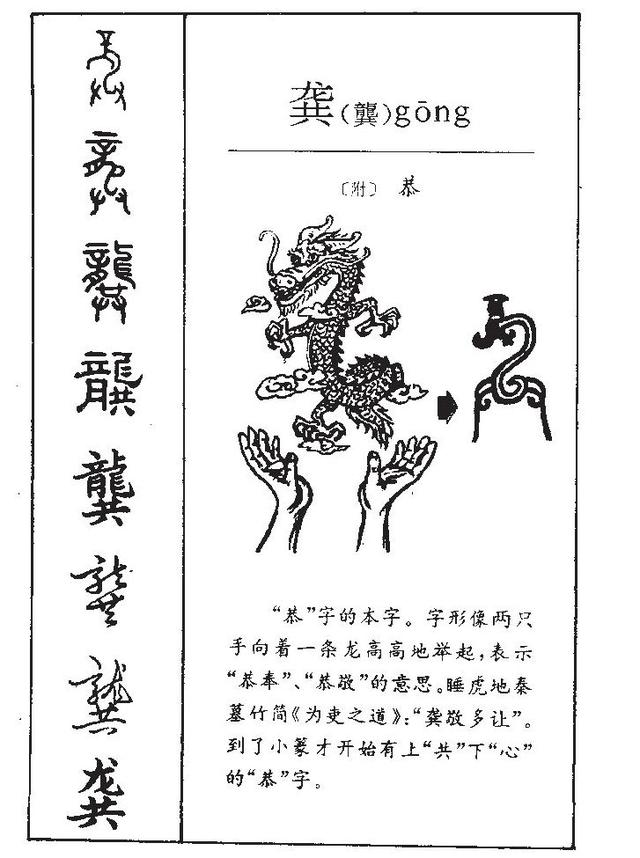 龚(龔)gōng
〔附〕 恭
“恭”字的本字。字形像两只
手向着一条龙高高地举起,表示
“恭奉”、“恭敬”的意思。睡虎地秦
墓竹简《为吏之道》:“龚敬多让”。
到了小篆才开始有上“共”下“心”
的“恭”字。
龔
龔
龔
龔
龔
龚